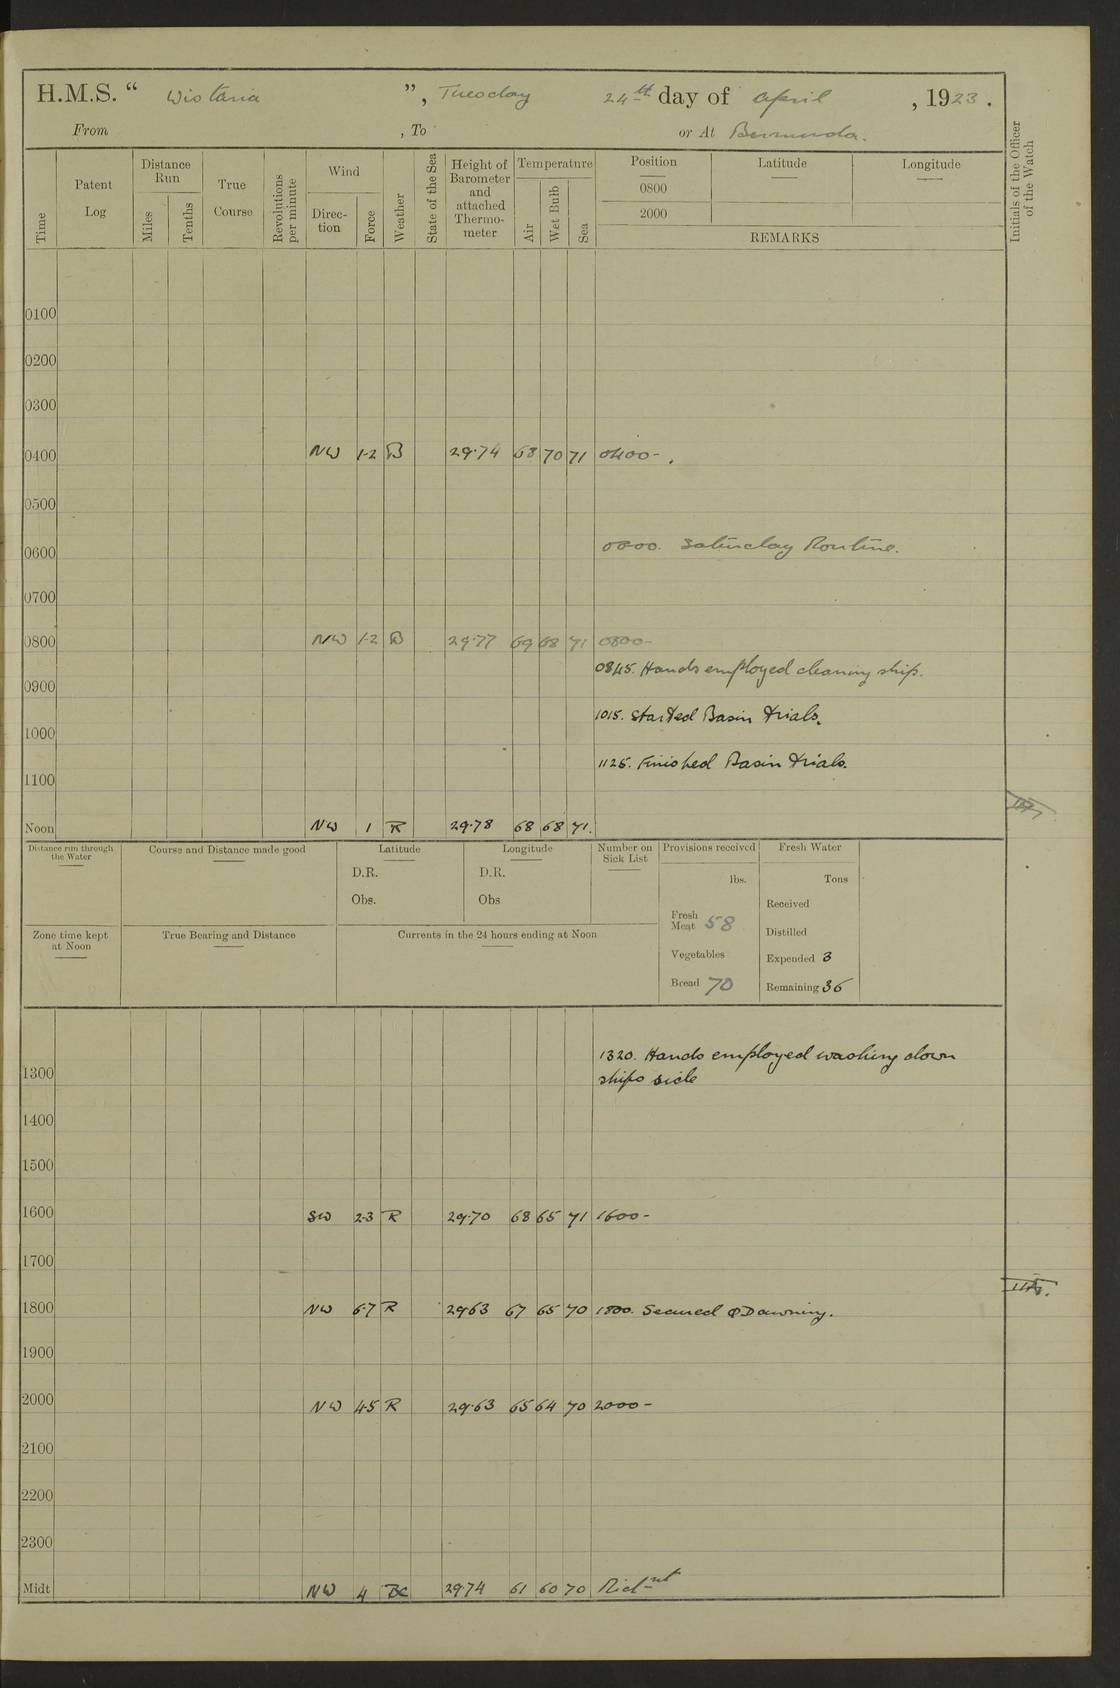 H.M.S. “ Wistaria ”, Tuesday 24th day of April , 1923.
From , To or At Bermuda.
Time
Patent Log
Distance Run
Miles
Tenths
True Course
Revolutions per minute
Wind
Direc-tion
Force
Weather
State of the Sea
Height of Barometer and attached Thermo-meter
Temperature
Air
Wet Bulb
Sea
Position Latitude Longitude
0800
2000
REMARKS
Initials of the Officer of the Watch
0100
0200
0300
0400 NW 1-2 B 29.74 68 70 71 0400-.
0500
0600 Saturday Routine.
0700
0800 NW 1-2 B 29.77 69 68 71 0800-
0845. Hands employed cleaning ship.
0900
1015. Started Basin trials.
1000
1125. Finished Basin trials.
1100
Noon NW 1 R 29.78 68 68 71.
Distance run through the Water
Course and Distance made good
Latitude
D.R.
Obs.
Longitude
D.R.
Obs
Number on Sick List
Provisions received
lbs.
Fresh Meat 58
Vegetables
Bread 70
Fresh Water
Tons
Received
Distilled
Expended 3
Remaining 36
Zone time kept at Noon
True Bearing and Distance
Currents in the 24 hours ending at Noon
1320. Hands employed washing down
1300 ships side
1400
1500
1600 SW 2-3 R 29.70 68 65 71 1600-
1700
1800 NW 6-7 R 2963 67 65 70 1800. Secured Awning.
1900
2000 NW 4-5 R 29.63 65 64 70 2000-
2100
2200
2300
Midt NW 4 BC 2974 61 60 70